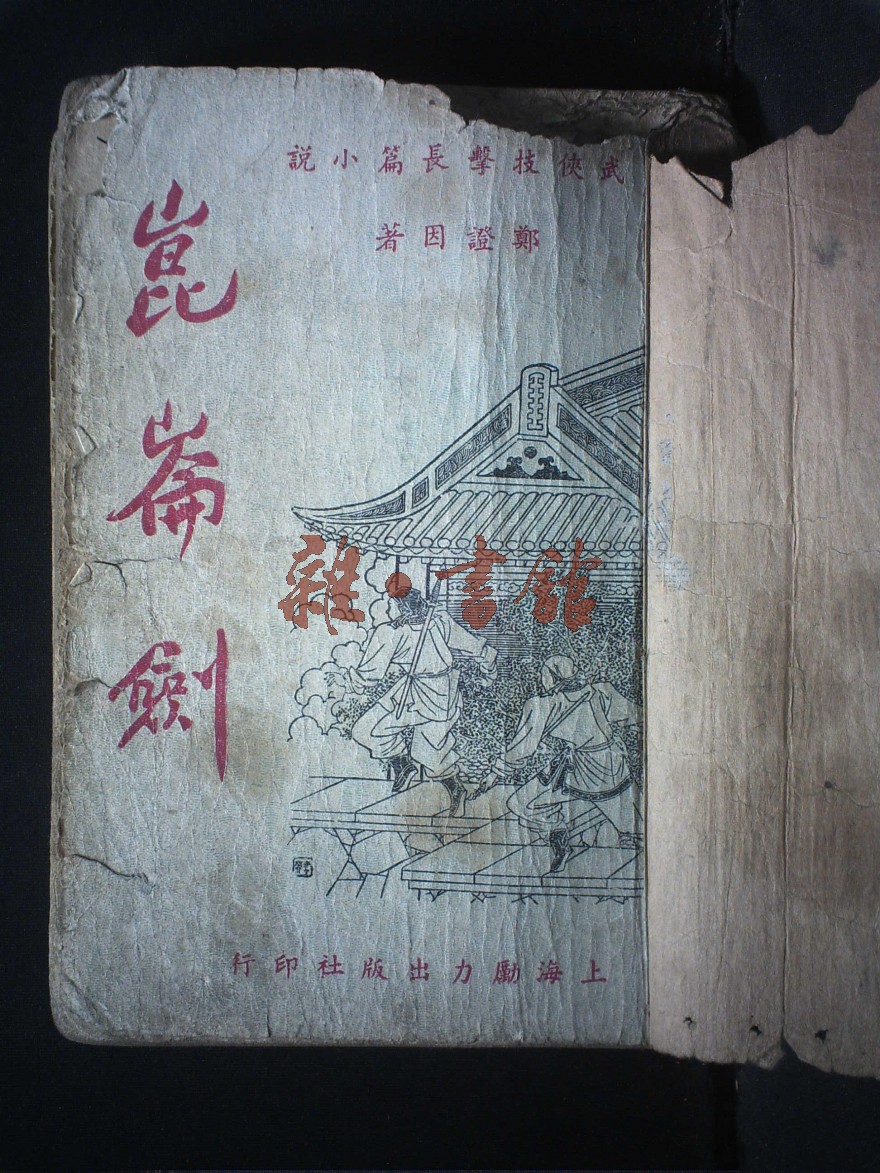 武俠技擊長篇小說
鄭證因著
崑崙劍
雜·書館
上海勵力出版社印行